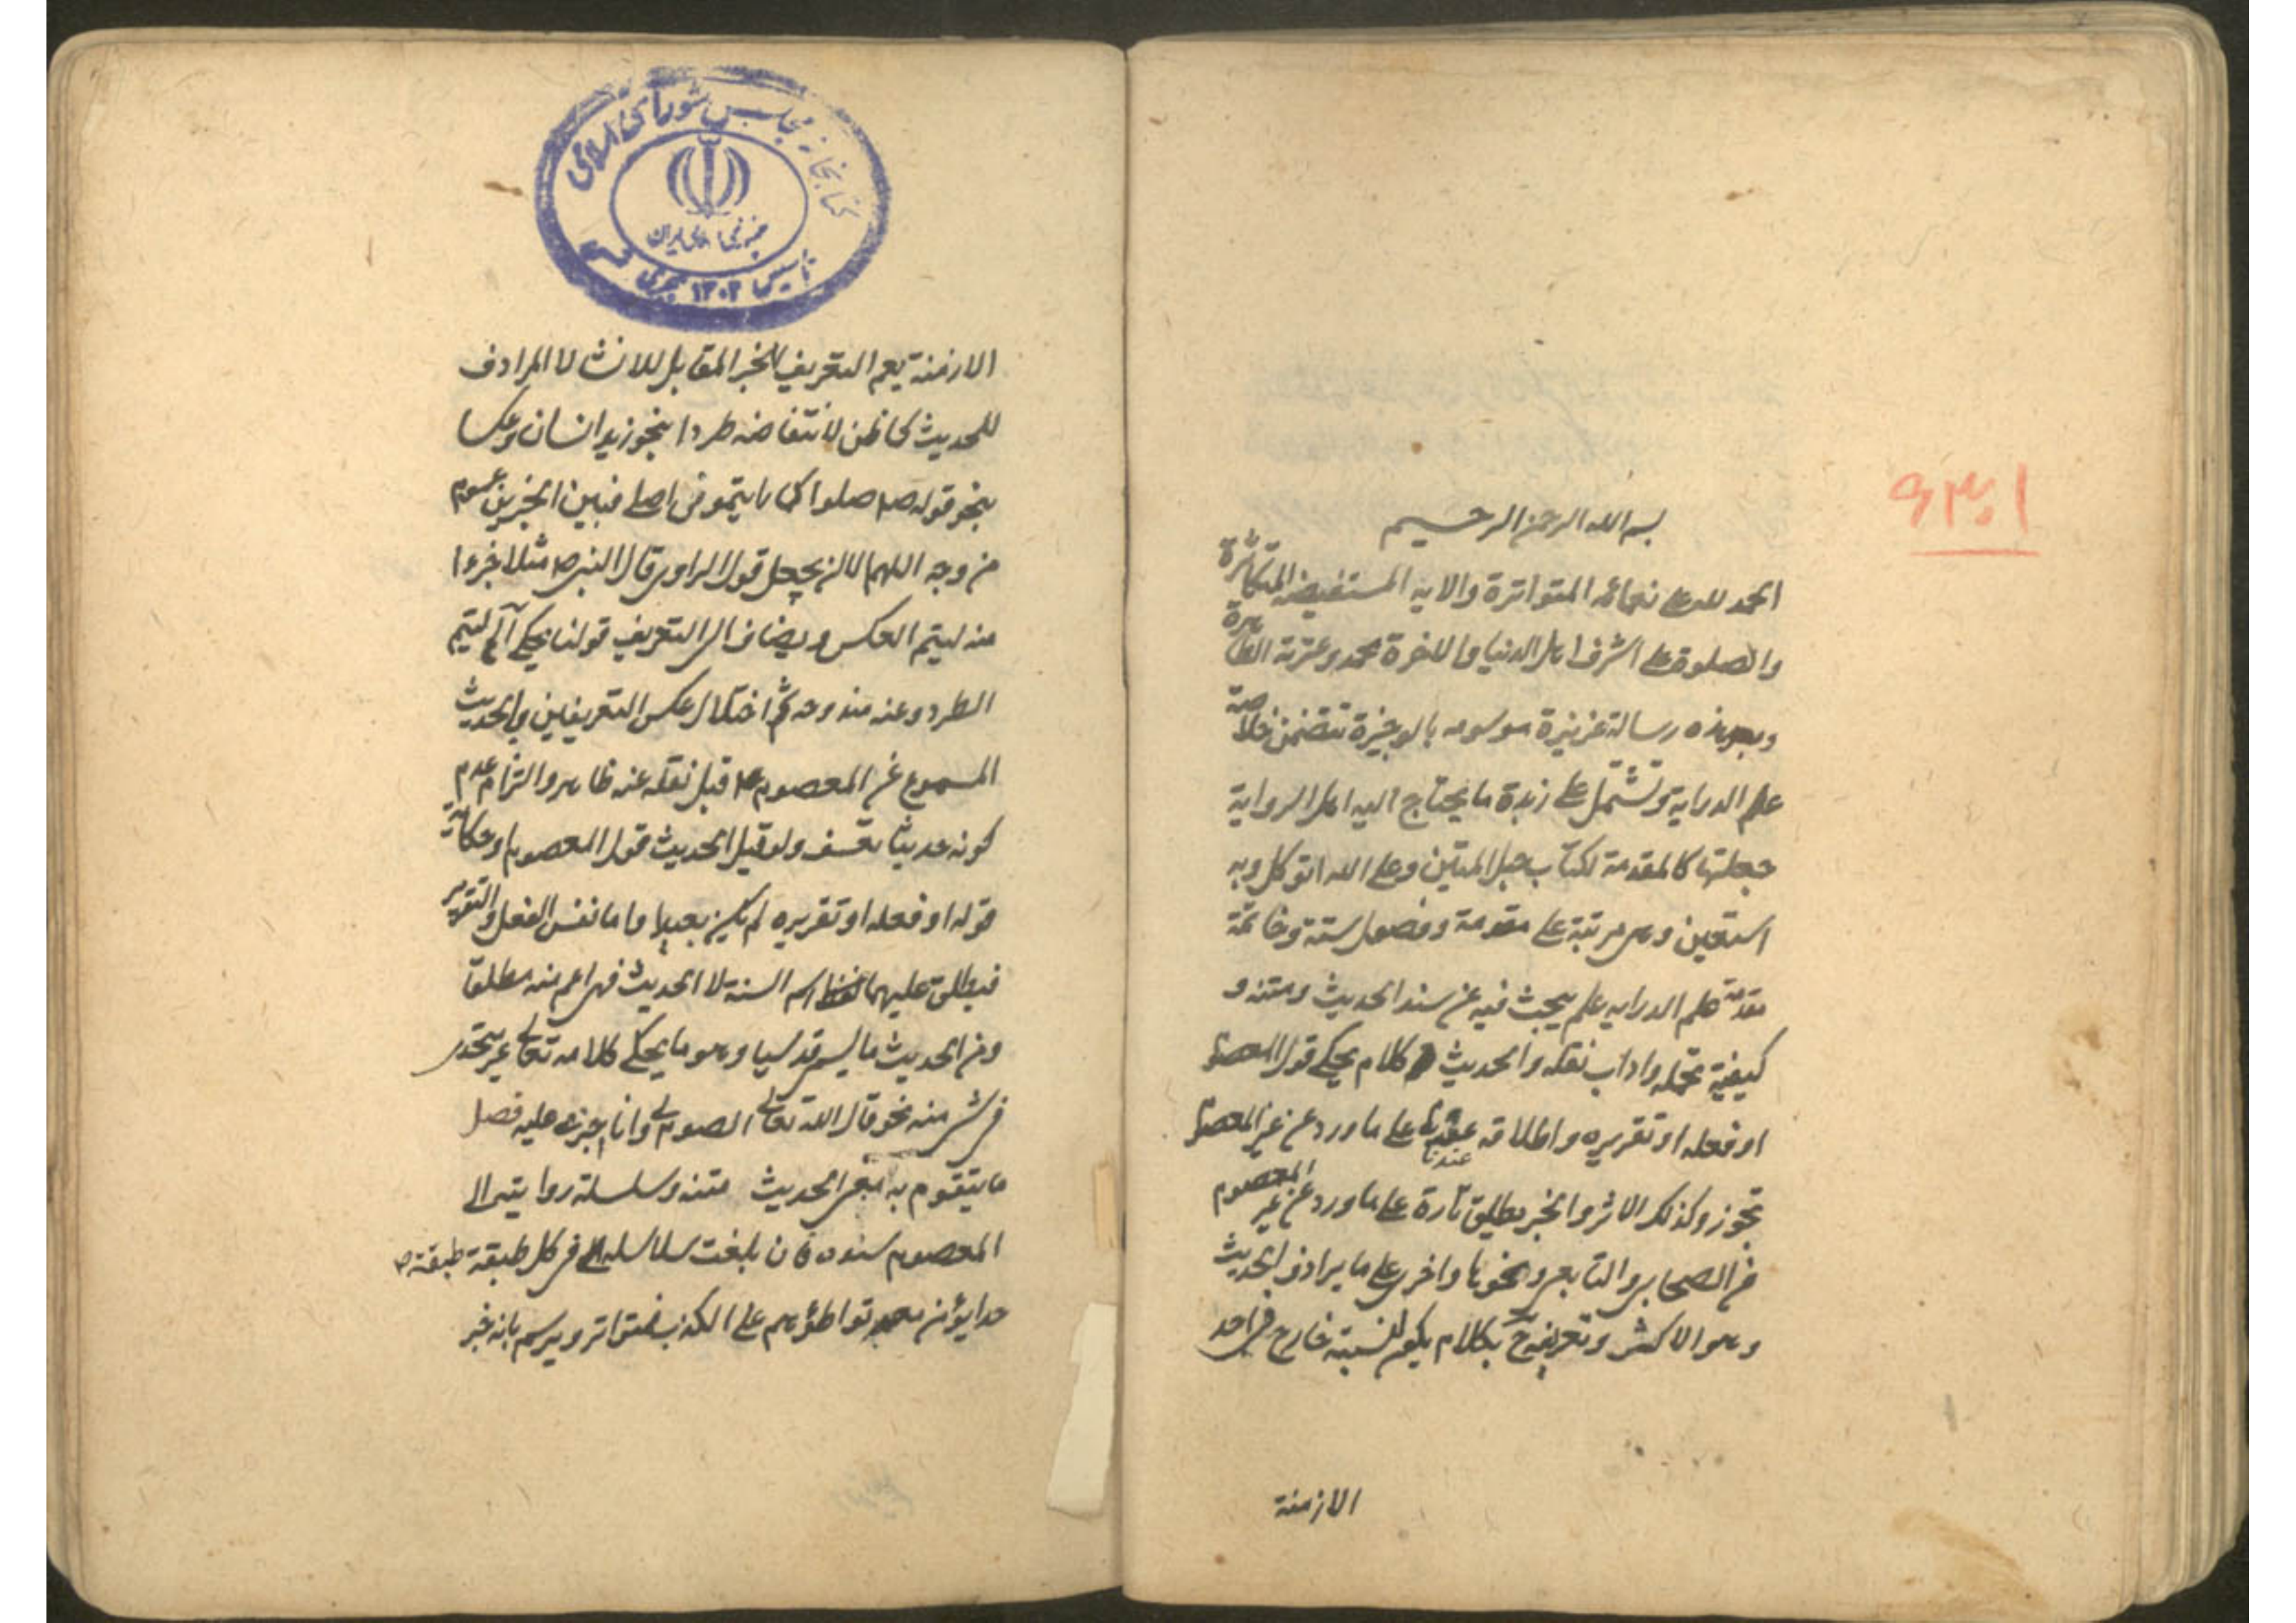 بسم الله الرحمن الرحیم
الحمد لله علی نعمائه المتواترة والایه المستفیضة المتکاثرة
والصلوة علی اشرف اهل الدنیا والاخرة محمد وعترته الطاهرة
وبعد هذه رسالة عزیزة موسومه بالوجیزة تتضمن خلاصة
علم الدرایة وتشتمل علی زبدة ما یحتاج الیه اهل الروایة
جعلتها کالمقدمة لکتاب حبل المتین وعلی الله اتوکل وبه
استعین وهی مرتبة علی مقدمة وفصول ستة وخاتمة
مقدمة علم الدرایه علم یبحث فیه عن سند الحدیث ومتنه و
کیفیة تحمله واداب نقله والحدیث کلام یحکی قول المعصوم
او فعله او تقریره واطلاقه عندنا علی ما ورد عن غیر المعصوم
عندنا
تجوز وکذلک الاثر والخبر یطلق تارة علی ما ورد عن غیر المعصوم
من الصحابی والتابعی ونحوهما واخری علی ما یرادف الحدیث
وهو الاکثر وتعریفه ح بکلام یکون لنسبته خارج فی احد
الازمنة
۱۳۰۹
کتابخانه مجلس شورای اسلامی
جمهوری اسلامی ایران
تاسیس ۱۳۰۲ هجری
الازمنة یعم التعریف للخبر المقابل للانشا لا المرادف
للحدیث کما ظن لانتقاضه طردا بنحو زید انسان وعکسا
بنحو قوله ص صلوا کما رایتمونی اصلی فبین الخبرین عموم
من وجه اللهم الا ان یجعل قول الراوی قال النبی ص مثلا جزءا
منه لیتم العکس ویضاف الی التعریف قولنا یحکی الخ لیتم
الطرد وعنه مندوحة ثم اختلال عکس التعریفین بالحدیث
المسموع عن المعصوم ع قبل نقله عنه ظاهر والتزام عدم
کونه حدیثا تعسف ولو قیل الحدیث قول المعصوم او حکایة
قوله او فعله او تقریره لم یکن بعیدا واما نفس الفعل والتقریر
فیطلق علیهما اسم السنة لا الحدیث فهی اعم منه مطلقا
ومن الحدیث ما یسمی قدسیا وهو ما یحکی کلامه تعالی غیر متحدی
فی شی منه نحو قال الله تعالی الصوم لی وانا اجزی علیه فصل
ما یتقوم به معنی الحدیث متنه وسلسلة رواتیه الی
المعصوم سنده فان بلغت سلاسله فی کل طبقة طبقة
حدا یؤمن معه تواطؤهم علی الکذب فمتواتر ویرسم بانه خبر